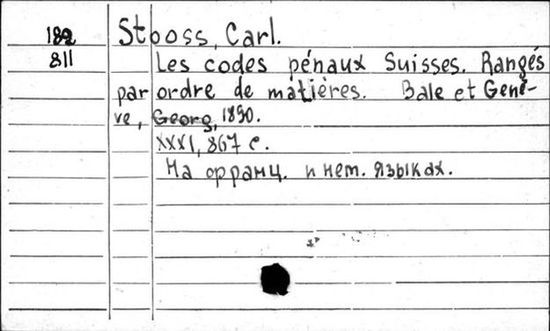 182 Stooss, Carl.
811 Les codes pénaux Suisses. Rangés
par ordre de matières. Bale et Genè-
ve, Georg, 1890.
XXXI, 867 с.
На франц. и нем. языках.